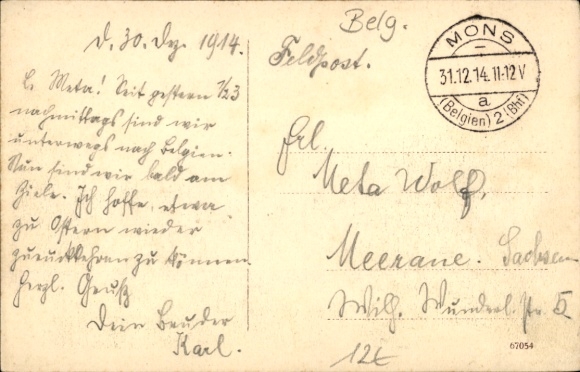 d. 30. Dez. 1914.
L. Meta! Seit gestern ½3
nachmittags sind wir
unterwegs nach Belgien.
Nun sind wir bald am
Ziele. Ich hoffe, etwa
zu Ostern wieder
zurückkehren zu können.
Herzl. Gruß
Dein Bruder
Karl.
Belg.
Feldpost.
MONS
31.12.14.11-12V
a
(Belgien) 2 (Bhf)
Frl.
Meta Wolf,
Meerane. Sachsen
Wilh. Wunderl. Str. 5
12€
67054